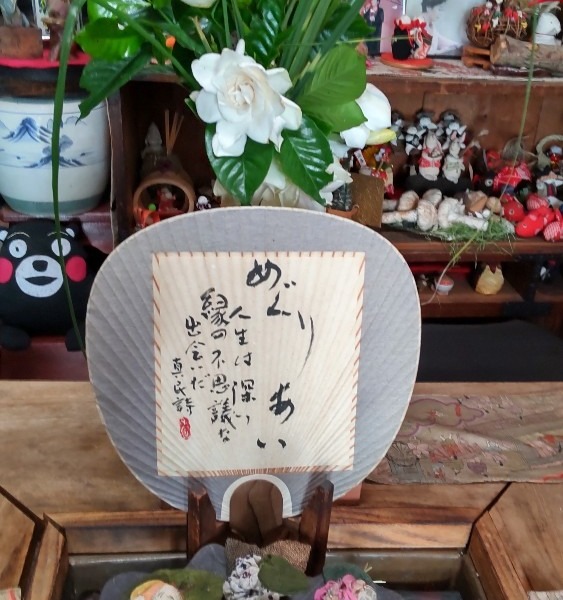 めぐりあい
人生は深い
縁の不思議な
出会いだ
真民詩